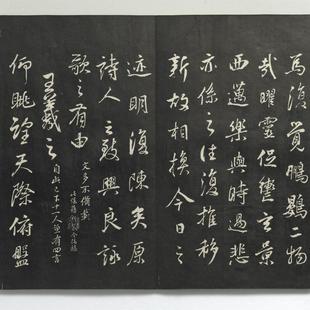 焉復覺鵬鷃二物
哉曜靈促轡玄景
西邁樂與時過悲
亦係之往復推移
新故相換今日之
迹明復陳矣原
詩人之致興良詠
歌之有由 文多不備載
王羲之 自此已下十一人並有四言
仰眺望天際俯盤